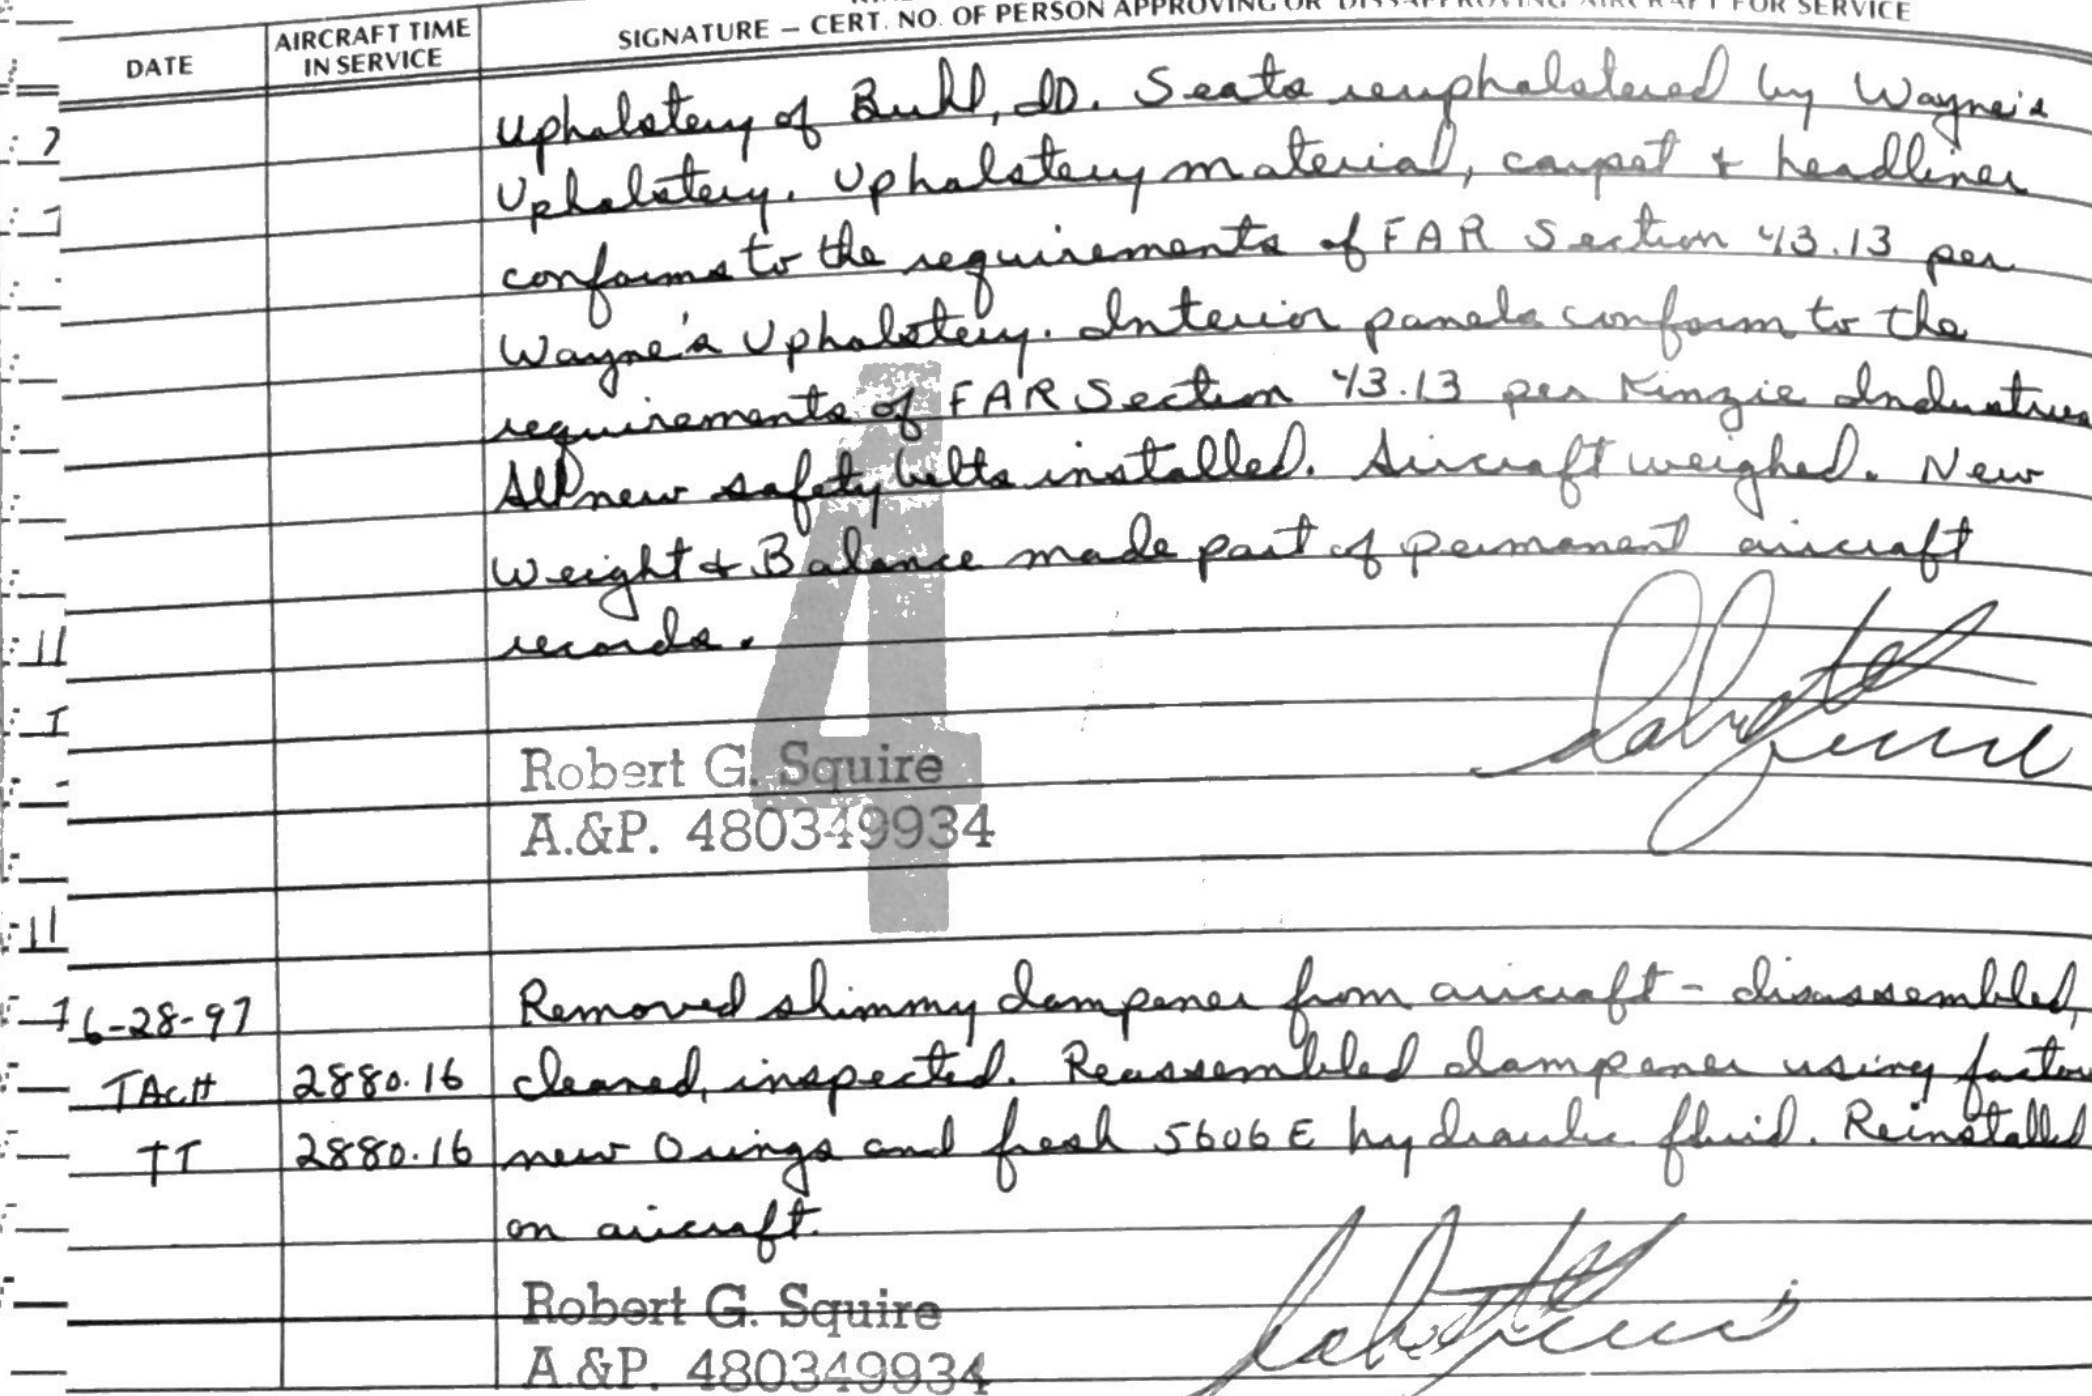 SIGNATURE — CERT. NO. OF PERSON APPROVING OR DISSAPPROVING AIRCRAFT FOR SERVICE
DATE
AIRCRAFT TIME
IN SERVICE
Upholstery of Buhl, ID. Seats reupholstered by Wayne's
Upholstery. Upholstery material, carpet + headliner
conforms to the requirements of FAR Section 43.13 per
Wayne's Upholstery. Interior panels conform to the
requirements of FAR Section 43.13 per Kinzie Industries
All new safety belts installed. Aircraft weighed. New
Weight + Balance made part of permanent aircraft
records.
4
Robert G. Squire
A.&P. 480349934
6-28-97 Removed shimmy dampener from aircraft - disassembled,
TACH 2880.16 cleaned, inspected. Reassembled dampener using factory
TT 2880.16 new Orings and fresh 5606E hydraulic fluid. Reinstalled
on aircraft.
Robert G. Squire
A.&P. 480349934